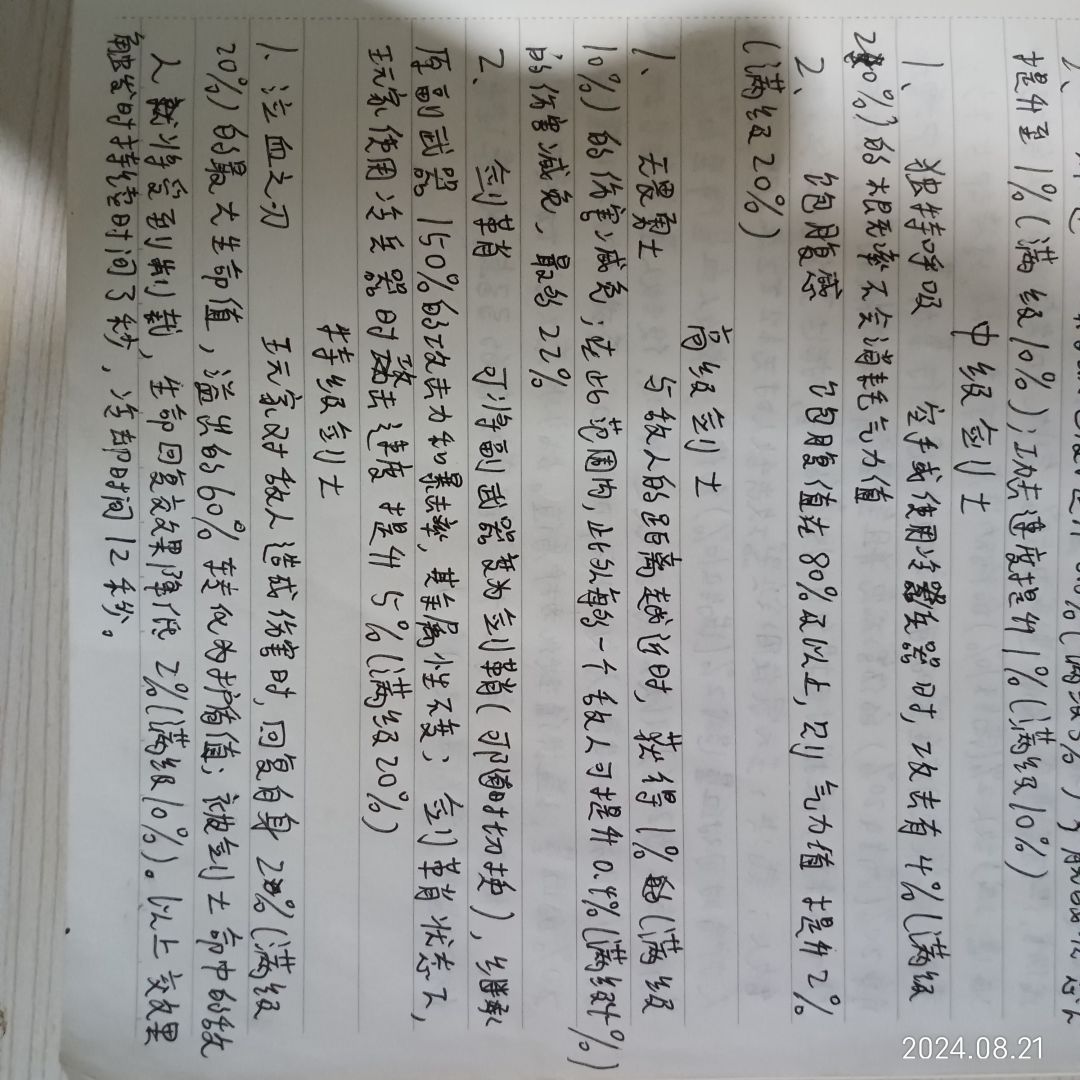 提升至1%(满级10%);攻击速度提升1%(满级10%)
中级剑士
1、独特呼吸 空手或使用冷兵器时,攻击有4%(满级
20%)的概率不会消耗气力值
2、饱腹感 饱腹值在80%及以上,则气力值提升2%
(满级20%)
高级剑士
1、无畏勇士 与敌人的距离越近时,获得1%的(满级
10%)的伤害减免;在此范围内,此外每的一个敌人可提升0.4%(满级4%)
的伤害减免,最多22%
2、剑鞘 可将副武器变为剑鞘(可随时切换),继承
原副武器150%的攻击力和暴击率,其余属性不变;剑鞘状态下,
玩家使用冷兵器时攻击速度提升5%(满级20%)
特级剑士
1、泣血之刃 玩家对敌人造成伤害时,回复自身2%(满级
20%)的最大生命值,溢出的60%转化为护盾值;被剑士命中的敌
人将受到制裁,生命回复效果降低2%(满级10%)。以上效果
触发时持续时间3秒,冷却时间12秒。
2024.08.21